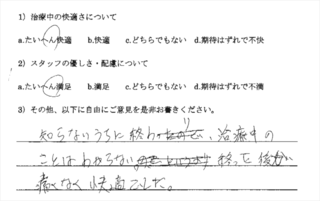 1）治療中の快適さについて
a.たいへん快適 b.快適 c.どちらでもない d.期待はずれで不快
2）スタッフの優しさ・配慮について
a.たいへん満足 b.満足 c.どちらでもない d.期待はずれで不満
3）その他、以下に自由にご意見を是非お書きください。
知らないうちに終わり、治療中の
ことはわからない。終って後が
痛くなく快適でした。